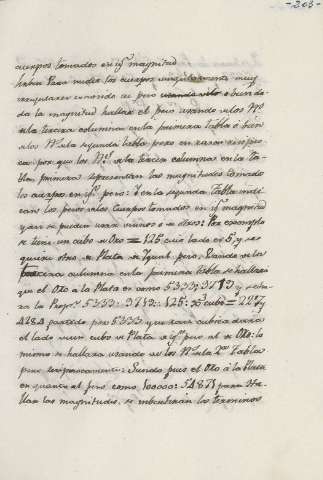 -203-
cuerpos tomados en igl magnitud
Para medir los cuerpos
irregulares conocido el peso
da la magnitud hallar el peso usando de los Nos
de la tercera columna en la primera tabla ó bien
los Ns de la segunda tabla pero en razon
por que los Ns de la tercera columna en la ta-
bla primera representan las magnitudes tomado
los cuerpos en igl peso: Y en la segunda Tabla indi-
can los pesos de los Cuerpos tomados en igl magnitud
y asi se pueden usar unos ó otros: Por exemplo
se tiene un cubo de Oro = 125 cuio lado es 5, y se
quiere otro de Plata de Igual peso; Usando de la
tercera columna en la primera Tabla se hallará
que el Oro á la Plata es como 5333: 9713 y echa
la Propn 5333: 9713: 125: cubo = 227,
4284 partido por 5333 cuia raiz cubica dará
el lado de un cubo de Plata de igl peso al de Oro: lo
mismo se hallara usando de los Ns de la 2a Tabla
pero reciprocamente: Siendo pues el Oro á la Plata
en quanto al peso como 100000: 54871 para ha-
llar las magnitudes, se los terminos